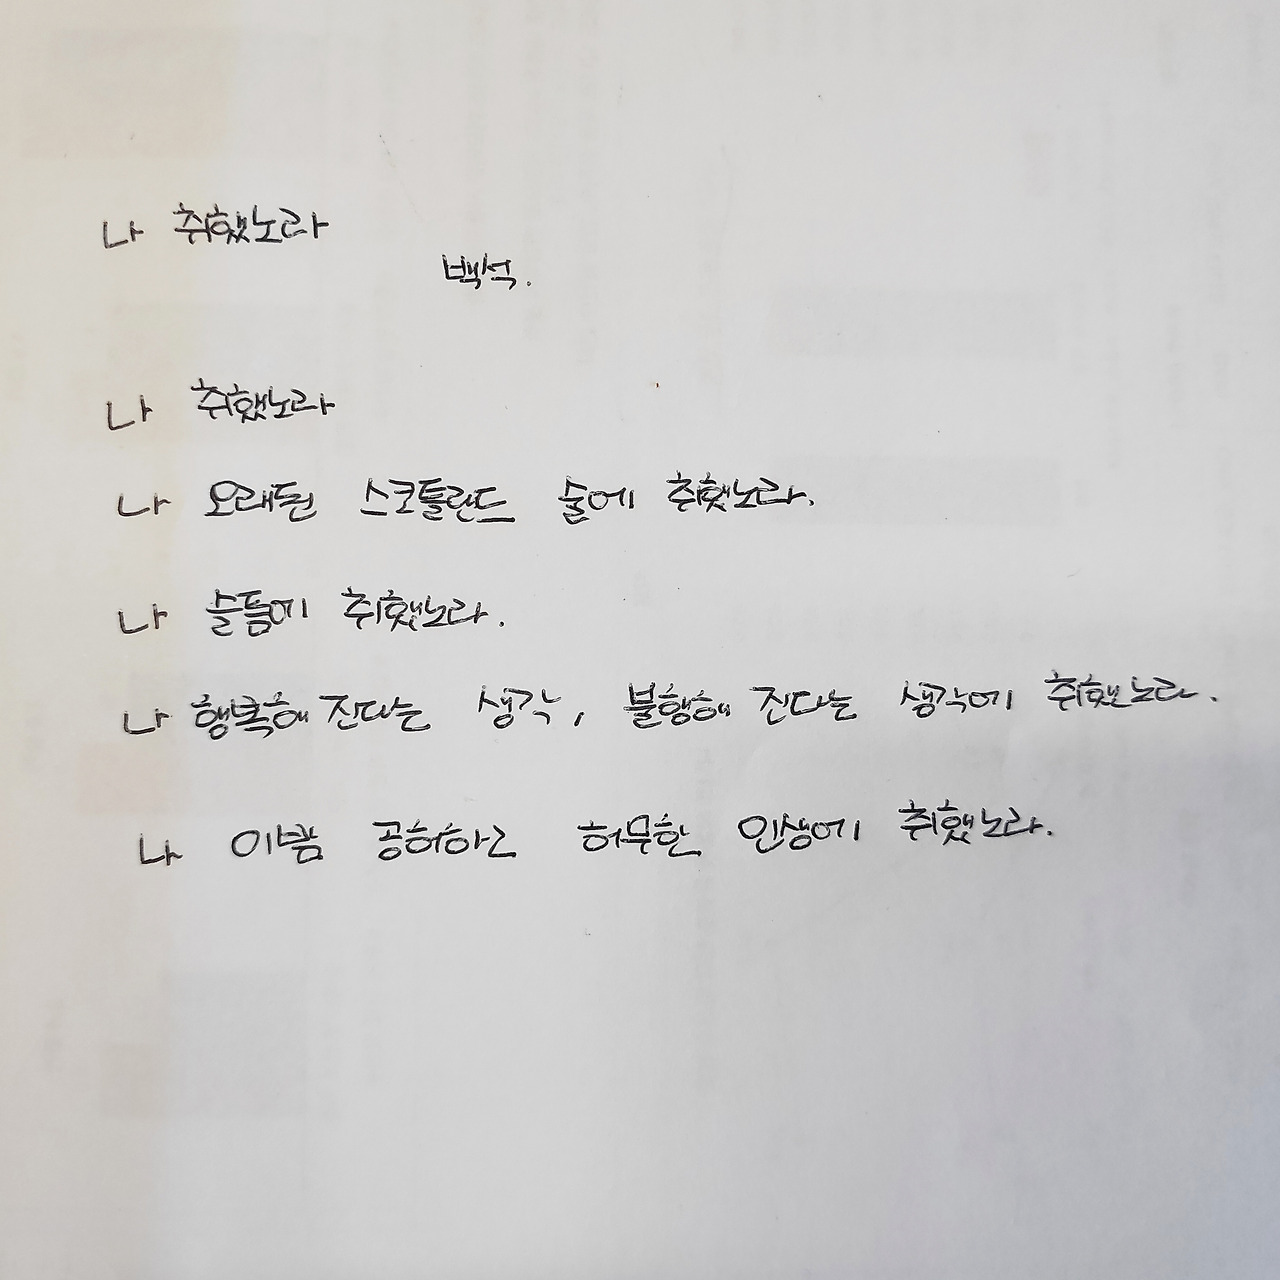 나 취했노라
백석.
나 취했노라
나 오래된 스코틀란드 술에 취했노라.
나 슬픔에 취했노라.
나 행복해진다는 생각, 불행해진다는 생각에 취했노라.
나 이밤 공허하고 허무한 인생에 취했노라.